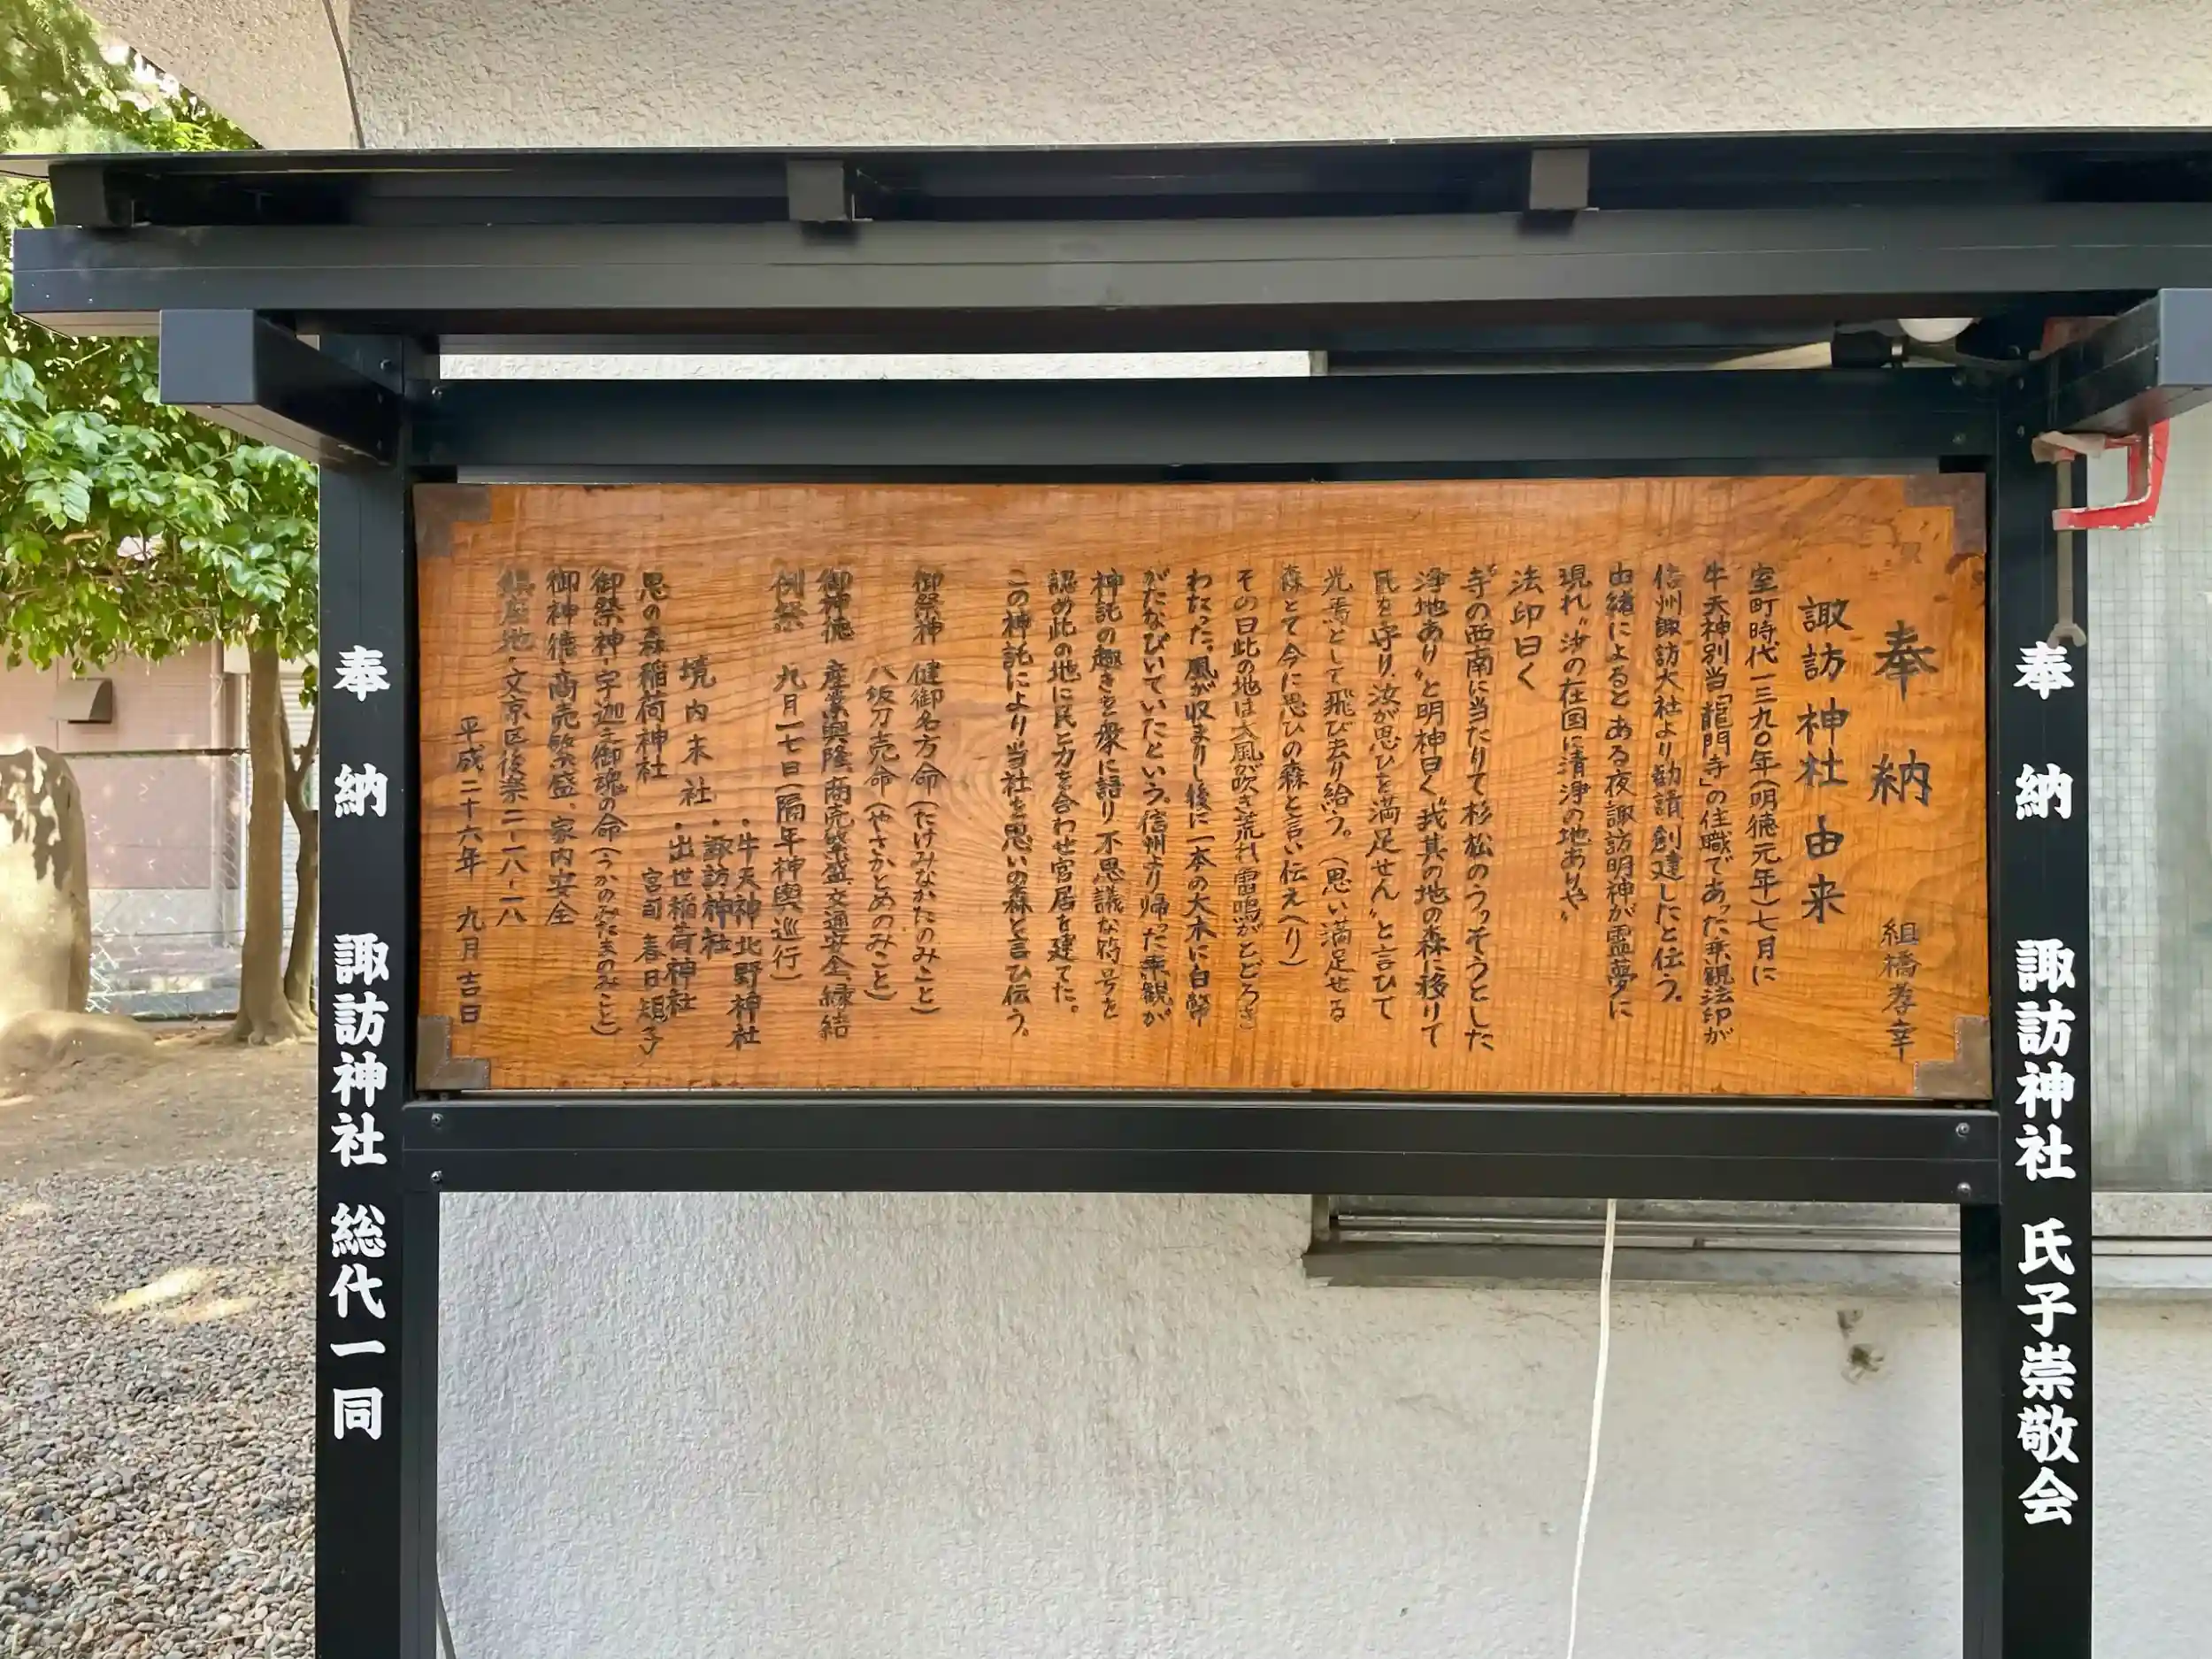 奉納 諏訪神社 氏子崇敬会
奉納
組橋孝幸
諏訪神社由来
室町時代一三九〇年(明徳元年)七月に
牛天神別当「龍門寺」の住職であった乗観法印が
信州諏訪大社より勧請、創建したと伝う。
由緒によると ある夜諏訪明神が霊夢に
現れ〝汝の在国に清浄の地ありや〟
法印曰く
〝寺の西南に当たりて杉松のうっそうとした
浄地あり〟と明神曰く〝我其の地の森に移りて
民を守り、汝が思ひを満足せん〟と言ひて
光焉として飛び去り給う。(思い満足せる
森とて今に思ひの森と言い伝えへり)
その日此の地は大風が吹き荒れ雷鳴がとどろき
わたった。風が収まりし後に一本の大木に白幣
がたなびいていたという。信州より帰った乗観が
神託の趣きを衆に語り 不思議な符号を
認め此の地に民と力を合わせ宮居を建てた。
この神託により当社を思いの森と言ひ伝う。
御祭神 健御名方命(たけみなかたのみこと)
八坂刀売命(やさかとめのみこと)
御神徳 産業興隆、商売繁盛、交通安全、縁結
例祭 九月二七日(隔年神輿巡行)
・牛天神北野神社
境内末社・諏訪神社
・出世稲荷神社
思の森稲荷神社 宮司 春日矩子
御祭神・宇迦之御魂の命(うかのみたまのみこと)
御神徳・商売繁盛、家内安全
鎮座地・文京区後楽二-一八-一八
平成二十六年 九月吉日
奉納 諏訪神社 総代一同